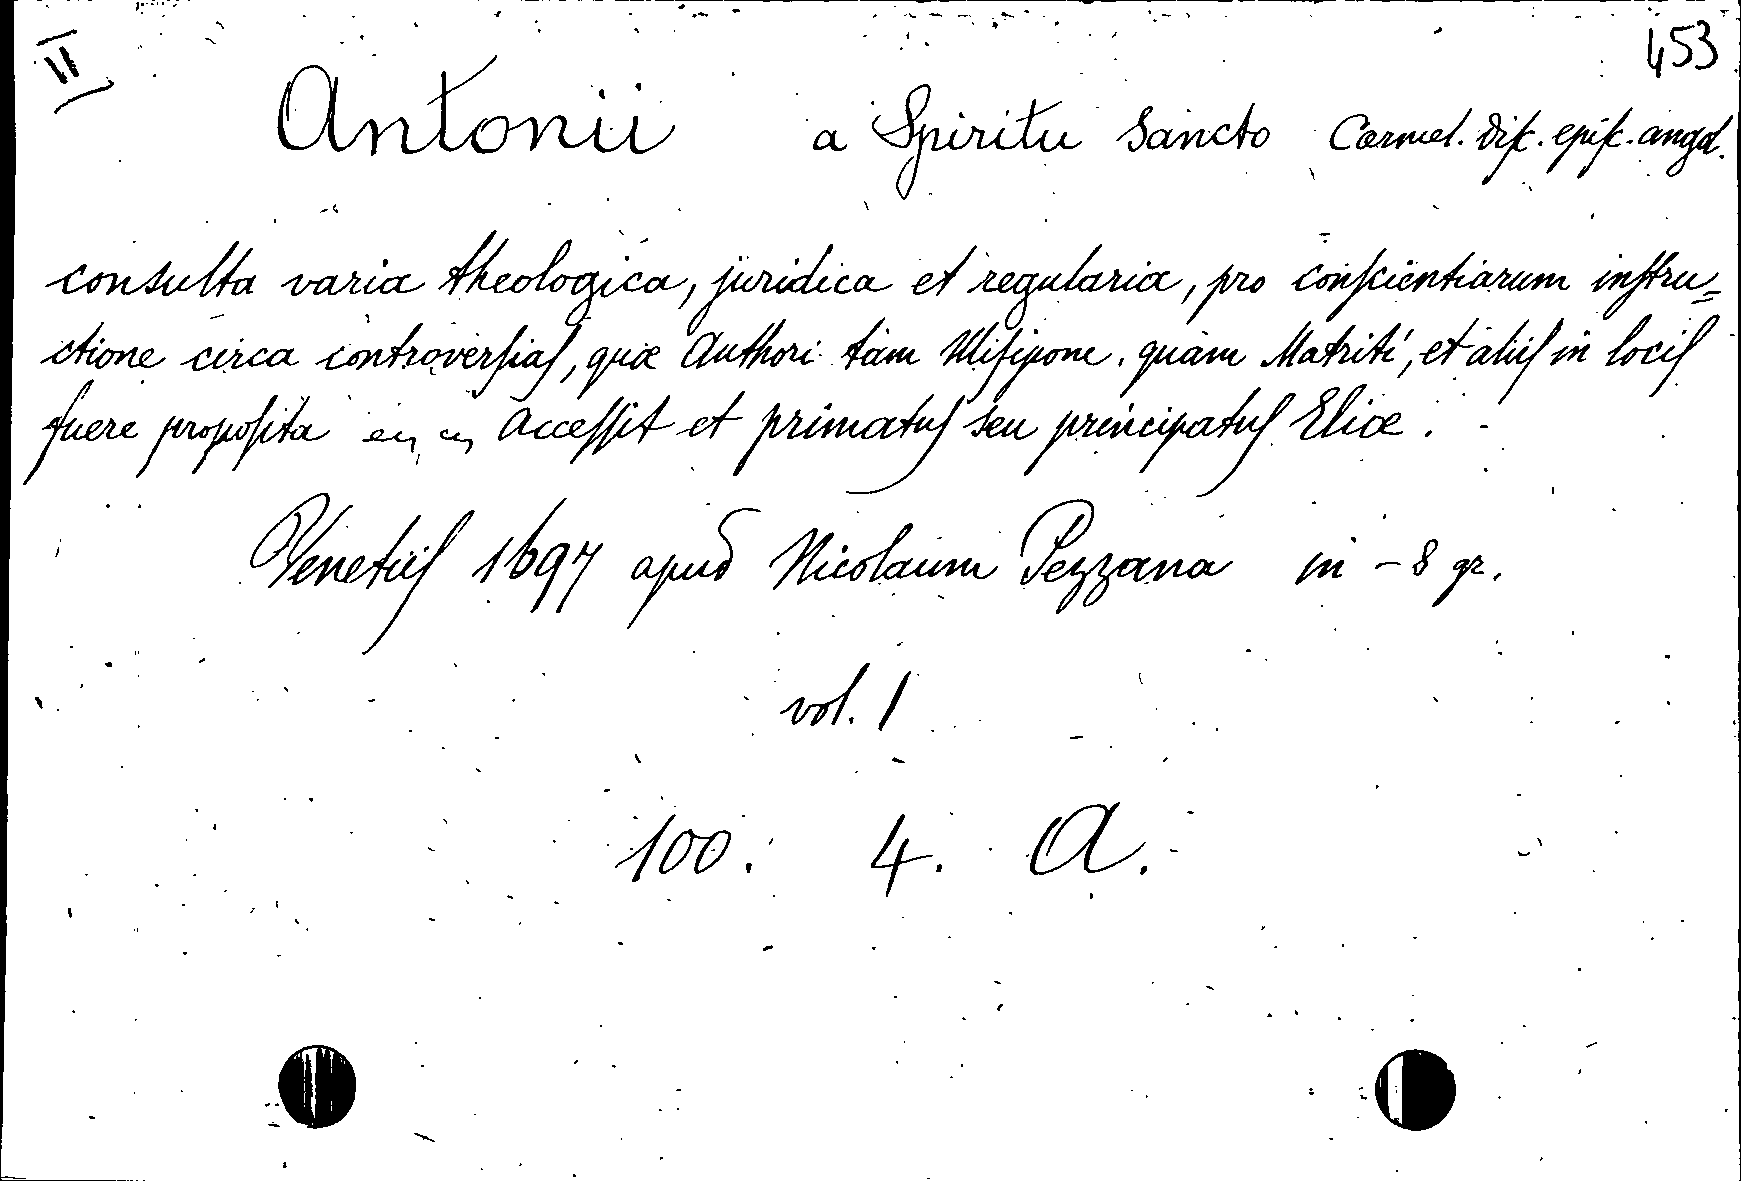 II 453
Antonii a Spiritu Sancto Carmel. disc. episc. angol.
consulta varia theologica, juridica et regularia, pro conscientiarum instru=
ctione circa controversias, quæ Authori tàm Ulisipone quàm Matriti, et aliis in locis
fuere proposita Accessit et primatus seu principatus Eliæ.
Venetiis 1697 apud Nicolaum Pezzana in - 8 gr.
vol. 1
100. 4. A.